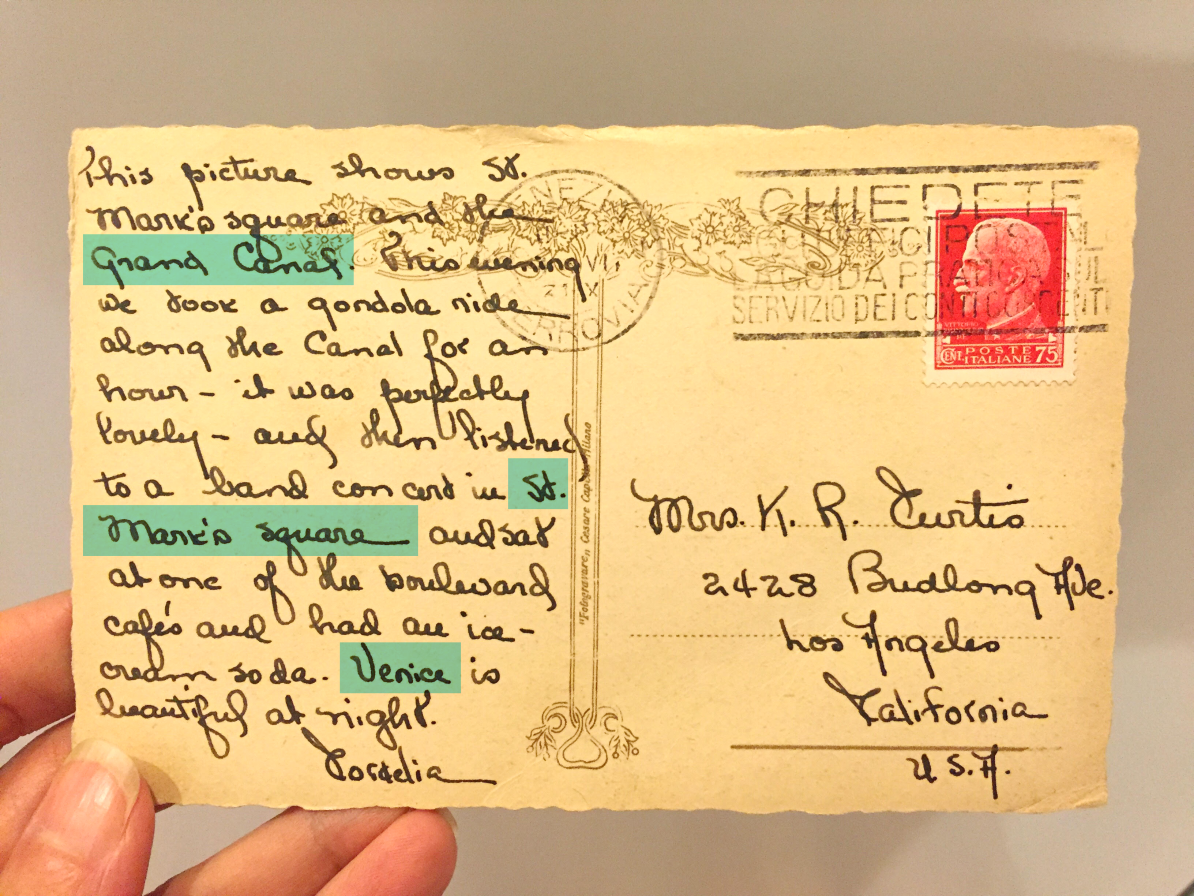 This picture shows St.
Mark's square and the
Grand Canal. This evening
we took a gondola ride
along the Canal for an
hour - it was perfectly
lovely - and then listened
to a band concert in St.
Mark's square and sat
at one of the boulevard
cafés and had an ice-
cream soda. Venice is
beautiful at night.
Cordelia
"Fotogravure" Cesare Capello Milano
VENEZIA
FERROVIA
CHIEDETE
LA GUIDA PRATICA SUL
SERVIZIO DEI CONTI CORRENTI
CENT. POSTE ITALIANE 75
Mrs. K. R. Curtis
2428 Budlong Ave.
Los Angeles
California
U.S.A.